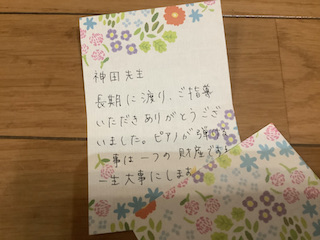 神田先生
長期に渡り、ご指導
いただきありがとうござ
いました。ピアノが弾ける
事は一つの財産である
一生大事にします